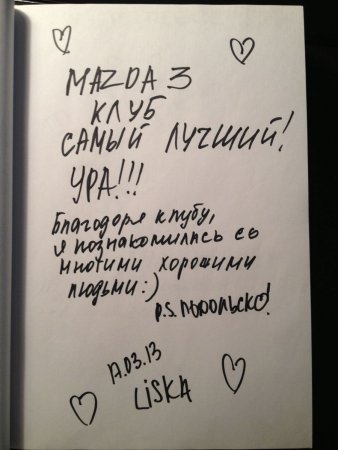 MAZDA 3
КЛУБ
САМЫЙ ЛУЧШИЙ!
УРА!!!
Благодоря клубу,
я познакомилась со
многими хорошими
людьми:)
P.S. Подольск!
17.03.13
LiSKA